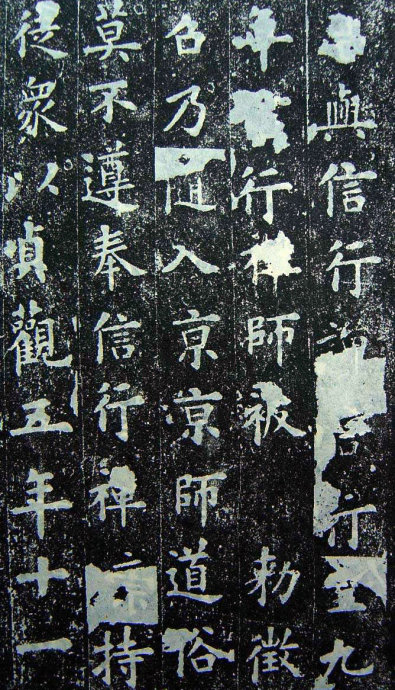 與信行行至九
年行禪師被 勅徵
召乃隨入京京師道俗
莫不遵奉信行禪持
徒衆以貞觀五年十一